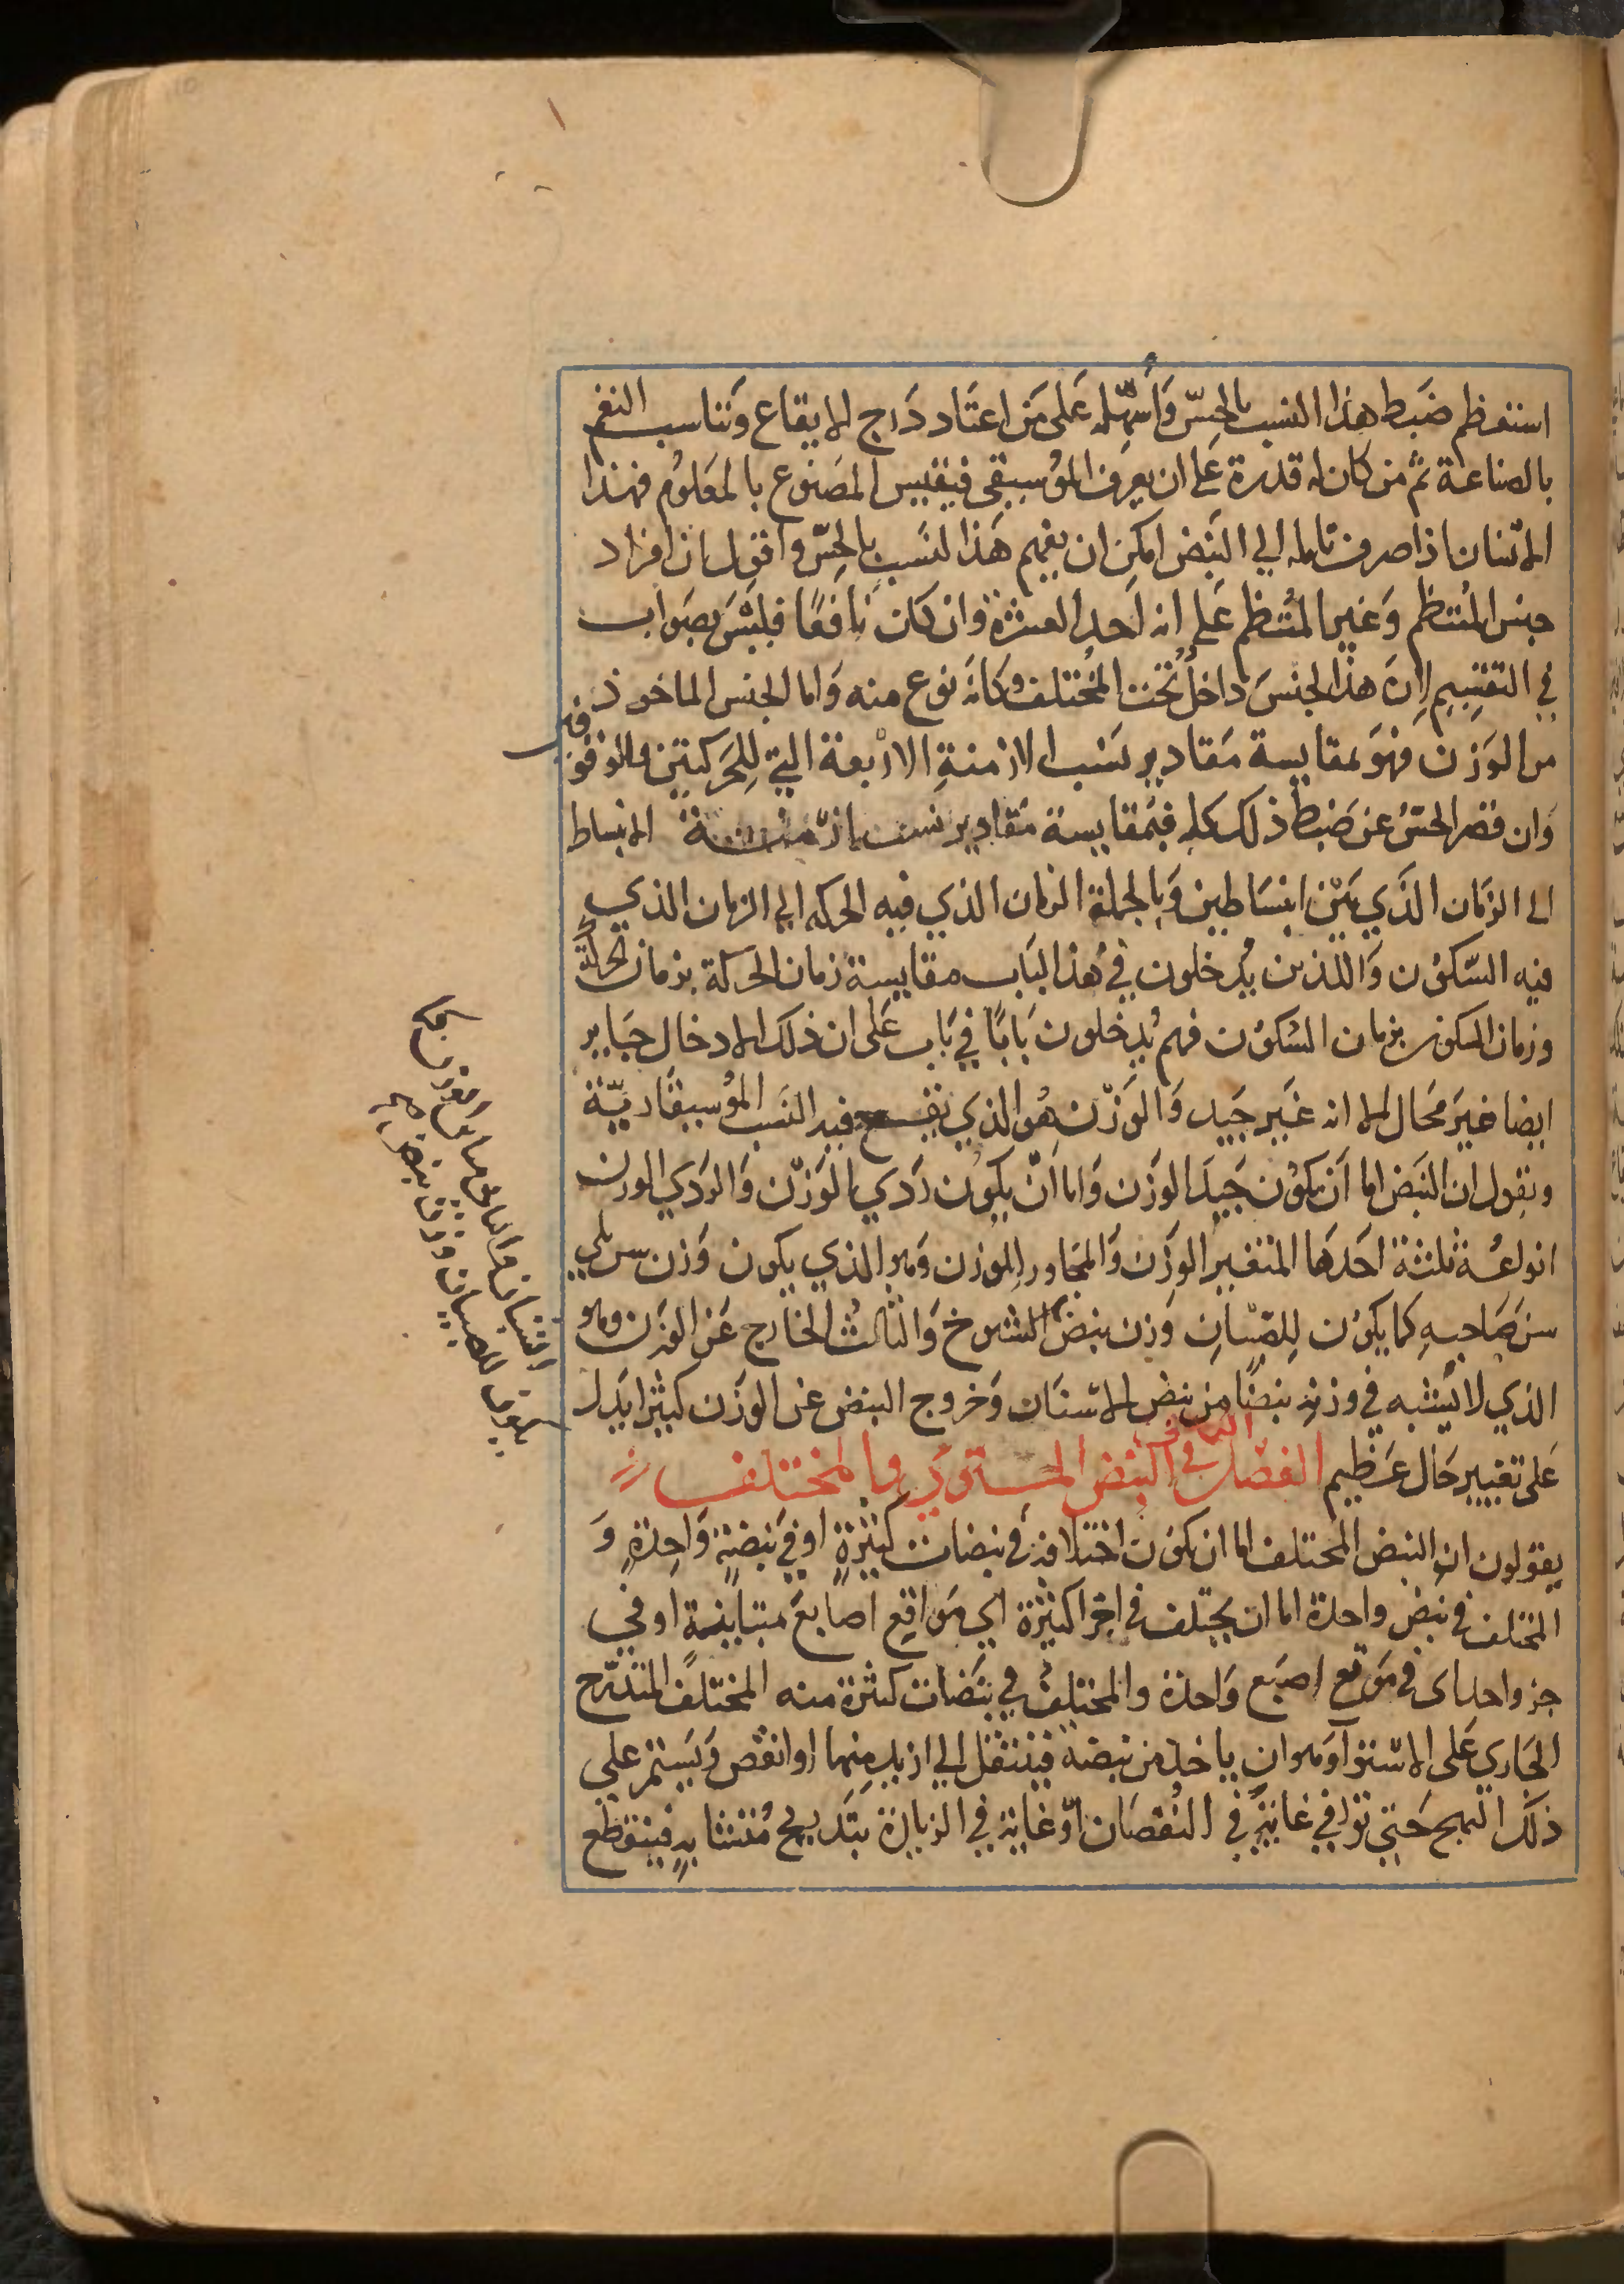 استعظم ضبط هذا النسب بالحس وأسهله على من اعتاد درج الايقاع وتناسب النغم
بالصناعة ثم من كان له قدرة على ان يعرف الموسيقى فيقيس المصنوع بالمعلوم فهذا
الانسان اذا صرف تامله الي النبض امكن ان يفهم هذا لنسب بالحس واقول ان افراد
جنس المنتظم وغير المنتظم على انه احد العشرة وان كان نافعا فليس بصواب
في التقسيم لان هذا الجنس داخل تحت المختلف وكانه نوع منه واما الجنس الماخوذ
من الوزن فهو بمقايسة مقادير نسب الازمنة الاربعة التي للحركتين والوقوفين
وان قصر الحس عن ضبط ذلك كله فبمقايسة مقادير نسب ازمنة الانبساط
الى الزمان الذي بين انبساطين وبالجملة الزمان الذي فيه الحركه الى الزمان الذي
فيه السكون والذين يدخلون في هذا الباب مقايسة زمان الحركة بزمان الحركة
وزمان السكون بزمان السكون فهم يدخلون بابا في باب على ان ذلك الادخال جايز
ايضا غير محال الا انه غير جيد والوزن هو الذي يقع فيه النسب الموسيقارية
ونقول ان النبض اما ان يكون جيد الوزن واما ان يكون ردي الوزن والردي الوزن
انواعه ثلثة احدها المتغير الوزن والمجاور الوزن وهو الذي يكون وزن سن يلي
سن صاحبه كما يكون للصبيان وزن نبض الشيوخ والثالث الخارج عن الوزن وهو
الذي لا يشبه في وزنه نبضا من نبض الاسنان وخروج النبض عن الوزن كثيرا يدل
على تغيير حال عظيم الفصل الثاني في النبض المستوي والمختلف
يقولون ان النبض المختلف اما ان يكون اختلافه في نبضات كثيرة او في نبضة واحدة و
المختلف في نبض واحدة اما ان يختلف في اجزا كثيرة اي مواقع اصابع متباينة او في
جزو احد اى في موقع اصبع واحدة والمختلف في نبضات كثرة منه المختلف المتدرج
الجاري على الاستوا وهو ان ياخذ من نبضة فينتقل الي ازيد منها او انقص ويستمر علي
ذلك النهج حتى توافي غاية في النقصان او غاية في الزيادة بتدريج متشابه فينقطع
يكون للصبيان وزن نبض